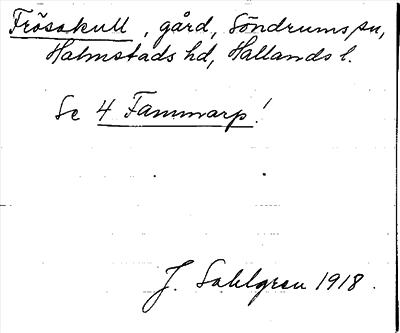 Frösakull, gård, Söndrums sn,
Halmstads hd, Hallands l.
Se 4 Fammarp!
J. Sahlgren 1918.